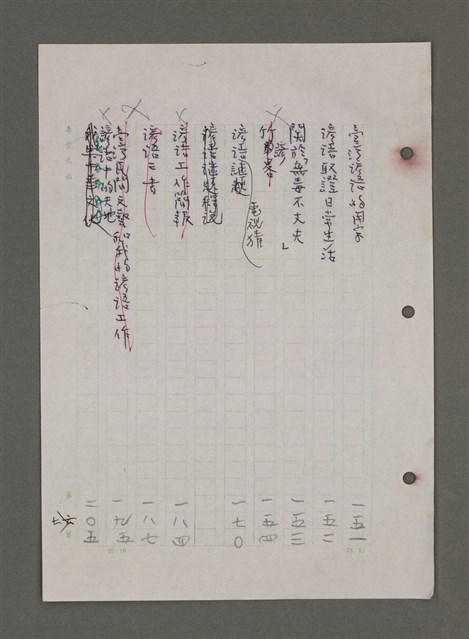 臺灣諺語的用字 一五一
諺語取證日常生活 一五二
「關於無毒不丈夫」 一五三
竹 諺 一五四
諺語謎題 電視猜 一七〇
諺語謎題釋說
諺語工作簡報 一八四
諺語三書 一八七
臺灣民間文藝和我的諺語工作 一九五
諺語中的天地 二〇五